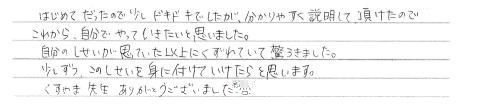 はじめてだったので少しドキドキでしたが、分かりやすく説明して頂けたので
これから、自分でやっていきたいと思いました。
自分のしせいが思っていた以上にくずれていて驚ろきました。
少しずつ、このしせいを身に付けていけたらと思います。
くすやま先生 ありがとうございました